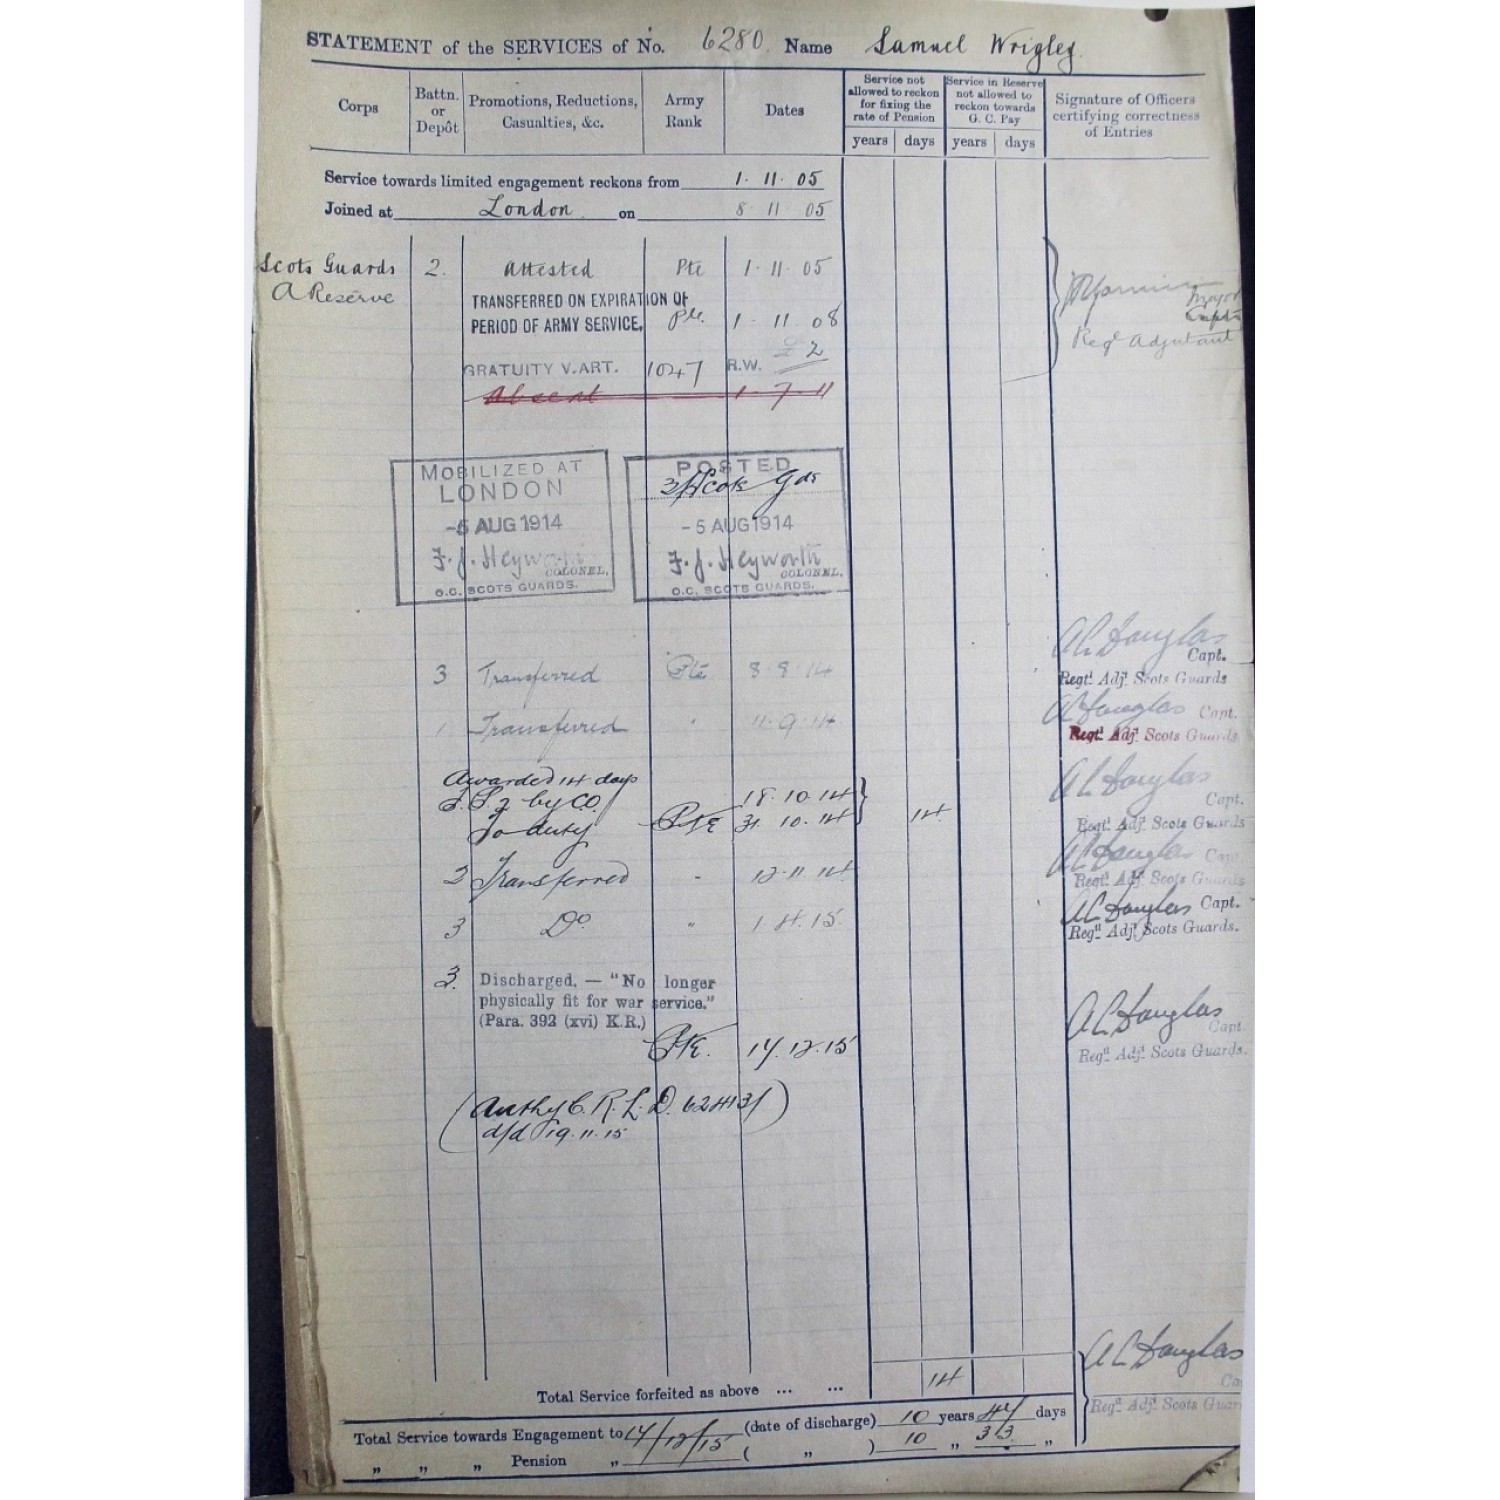 STATEMENT of the SERVICES of No. 6280 Name Samuel Wrigley
Corps
Battn. or Depôt
Promotions, Reductions, Casualties, &c.
Army Rank
Dates
Service not allowed to reckon for fixing the rate of Pension
years days
Service in Reserve not allowed to reckon towards G. C. Pay
years days
Signature of Officers certifying correctness of Entries
Service towards limited engagement reckons from 1. 11. 05
Joined at London on 8 11 05
Scots Guards 2. Attested Pte 1. 11. 05
A Reserve
TRANSFERRED ON EXPIRATION OF
PERIOD OF ARMY SERVICE. Pte. 1. 11. 08
Major
Capt
Regl Adjutant
GRATUITY V.ART. 1047 R.W. £2
Absent 1. 7. 11
MOBILIZED AT
LONDON
-5 AUG 1914
F. J. Heyworth
COLONEL,
O.C. SCOTS GUARDS.
POSTED
3/Scots Gds
-5 AUG 1914
F. J. Heyworth
COLONEL,
O.C. SCOTS GUARDS.
3 Transferred Pte 8. 9. 14 A C Douglas Capt.
Regtl Adjt. Scots Guards
1 Transferred " 11. 9. 14 A C Douglas Capt.
Regtl Adjt. Scots Guards
Awarded 14 days
by CO. 18. 10. 14 A C Douglas Capt.
To duty Pte 31. 10. 14 14 Regtl Adjt. Scots Guards
3 Transferred " 12. 11. 14 A C Douglas Capt.
Regtl Adjt. Scots Guards
3 Do " 1. 4. 15 A C Douglas Capt.
Regtl Adjt. Scots Guards.
3. Discharged. — "No longer
physically fit for war service."
(Para. 392 (xvi) K.R.)
Pte. 17. 12. 15 A C Douglas Capt
Regtl Adjt. Scots Guards.
(Authy C. R. L. D. 62413/)
d/d 19. 11. 15
Total Service forfeited as above ... ... 14
A C Douglas
Ca
Regtl Adjt. Scots Guar
Total Service towards Engagement to 17/12/15 (date of discharge) 10 years 47 days
" " " Pension " ( " ) 10 " 33 "